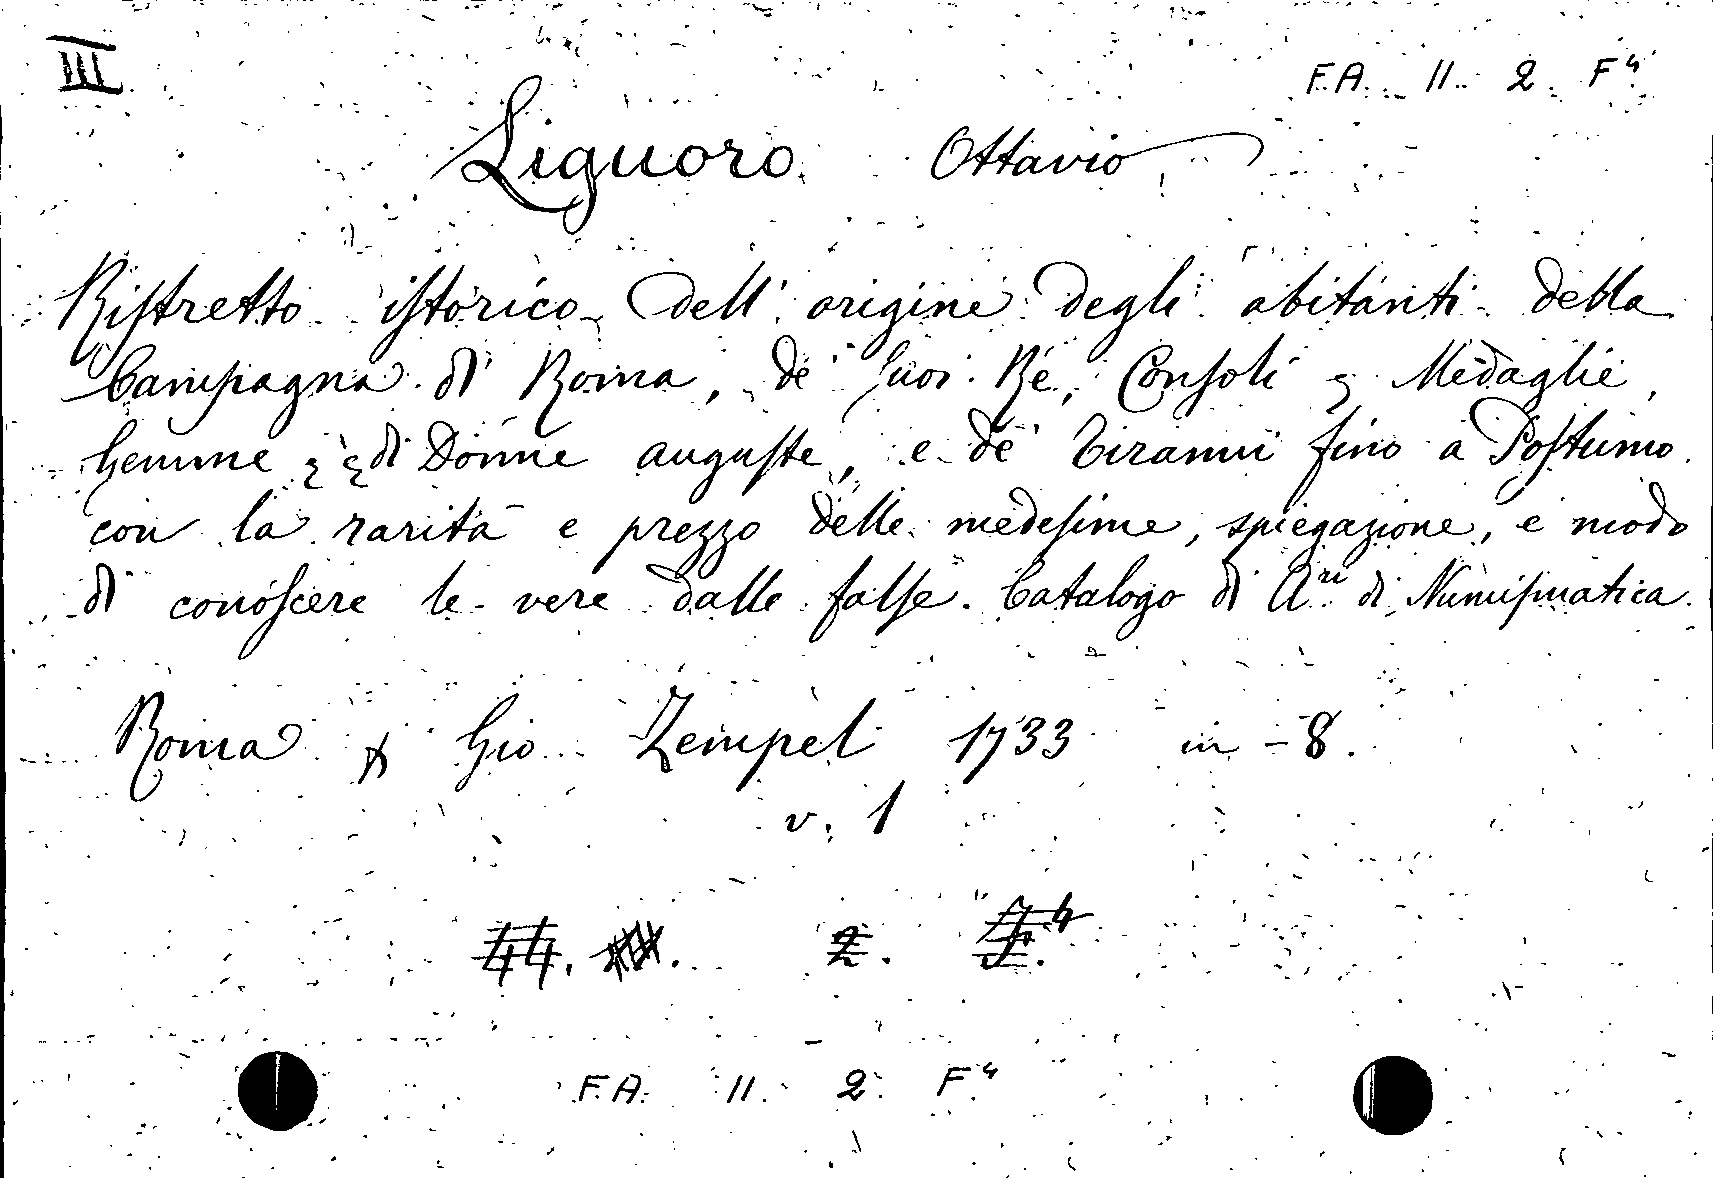 III
F.A. II. 2. F⁴
Liguoro Ottavio
Ristretto istorico dell' origine degli abitanti della
Campagna di Roma, de' suoi Re, Consoli, Medaglie,
Gemme di Donne auguste, e de' Tiranni fino a Postumo.
con la rarità e prezzo delle medesime, spiegazione, e modo
di conoscere le vere dalle false. Catalogo di A.ri di Numismatica.
Roma Gio Zempel 1733 in-8.
v. 1
44. 2. F.⁴
F.A. II. 2. F⁴